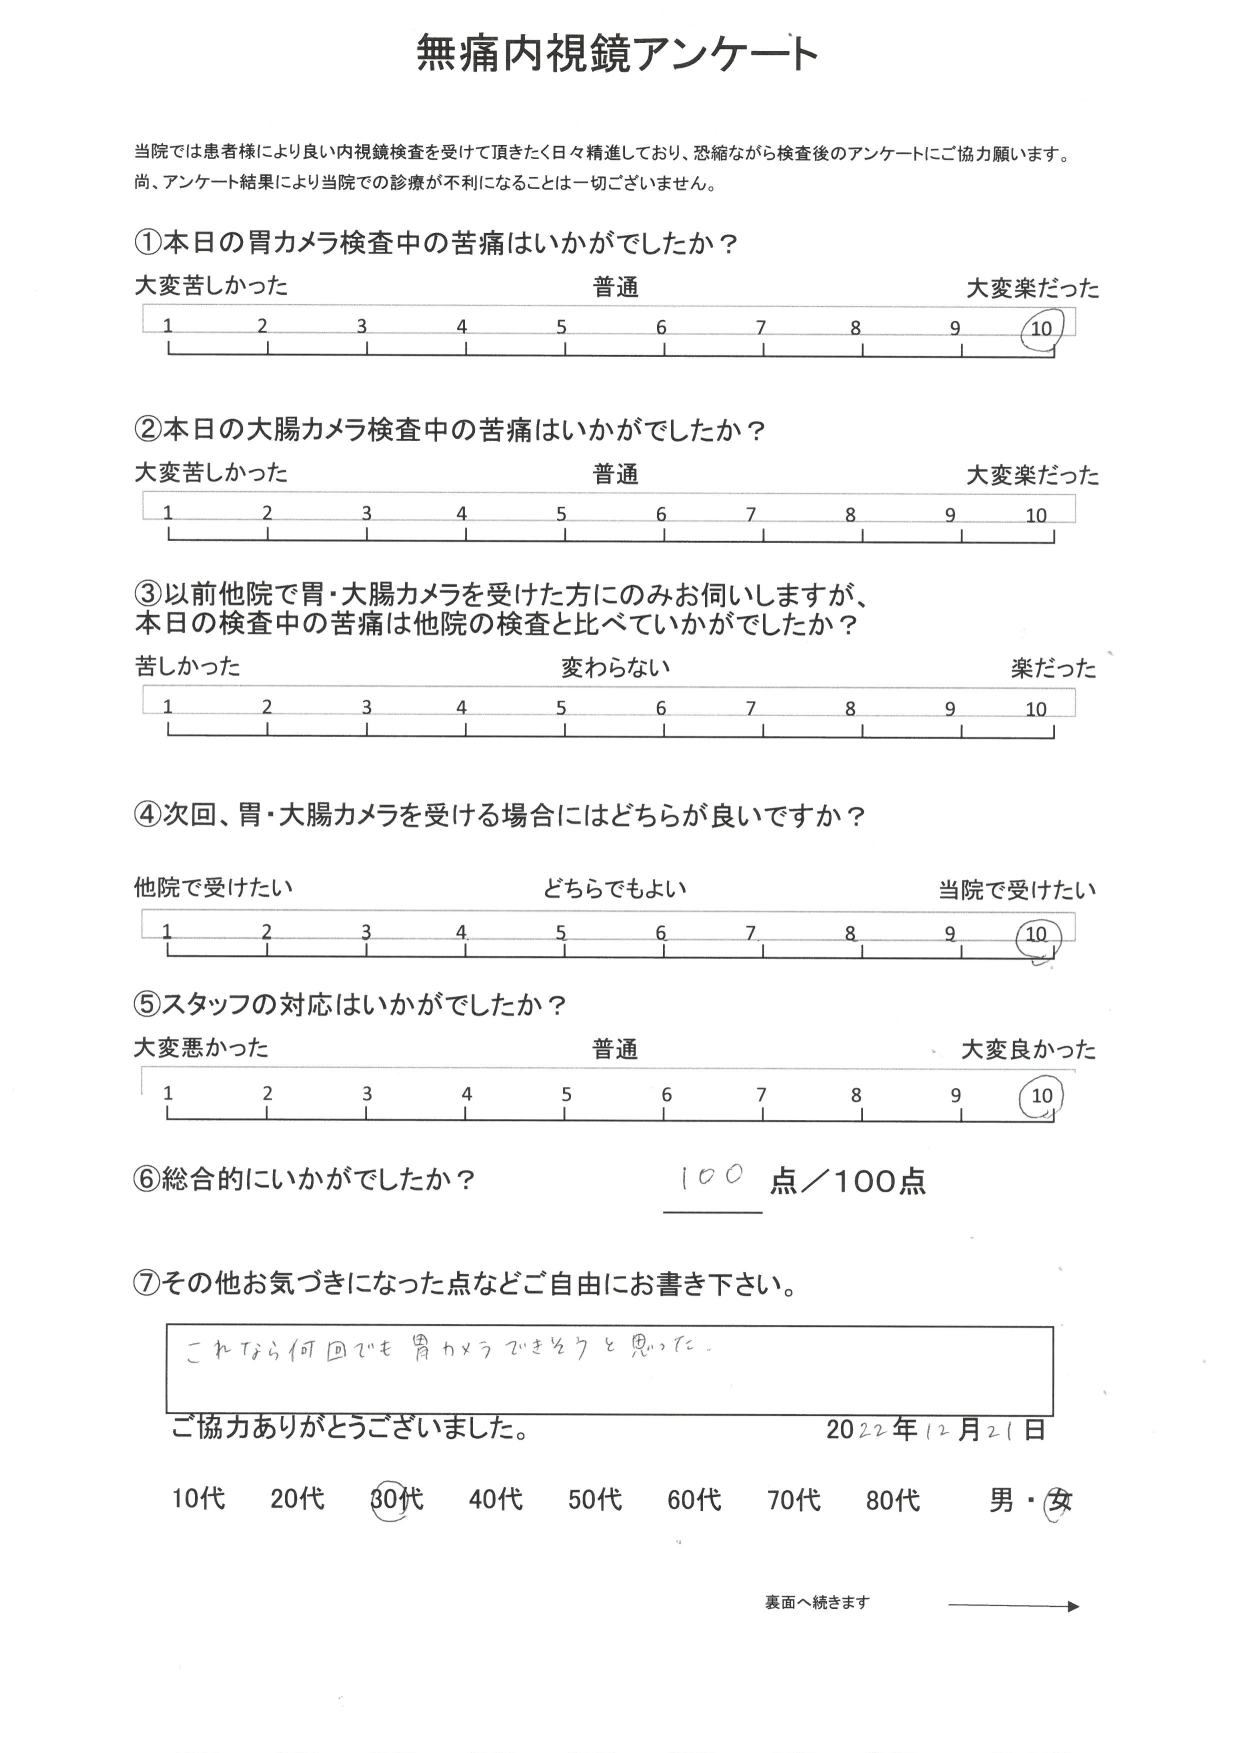 無痛内視鏡アンケート
当院では患者様により良い内視鏡検査を受けて頂きたく日々精進しており、恐縮ながら検査後のアンケートにご協力願います。
尚、アンケート結果により当院での診療が不利になることは一切ございません。
①本日の胃カメラ検査中の苦痛はいかがでしたか？
大変苦しかった 普通 大変楽だった
1 2 3 4 5 6 7 8 9 10
②本日の大腸カメラ検査中の苦痛はいかがでしたか？
大変苦しかった 普通 大変楽だった
1 2 3 4 5 6 7 8 9 10
③以前他院で胃・大腸カメラを受けた方にのみお伺いしますが、
本日の検査中の苦痛は他院の検査と比べていかがでしたか？
苦しかった 変わらない 楽だった
1 2 3 4 5 6 7 8 9 10
④次回、胃・大腸カメラを受ける場合にはどちらが良いですか？
他院で受けたい どちらでもよい 当院で受けたい
1 2 3 4 5 6 7 8 9 10
⑤スタッフの対応はいかがでしたか？
大変悪かった 普通 大変良かった
1 2 3 4 5 6 7 8 9 10
⑥総合的にいかがでしたか？ 100 点／100点
⑦その他お気づきになった点などご自由にお書き下さい。
これなら何回でも胃カメラできそうと思った.
ご協力ありがとうございました。 2022年12月21日
10代 20代 30代 40代 50代 60代 70代 80代 男・女
裏面へ続きます